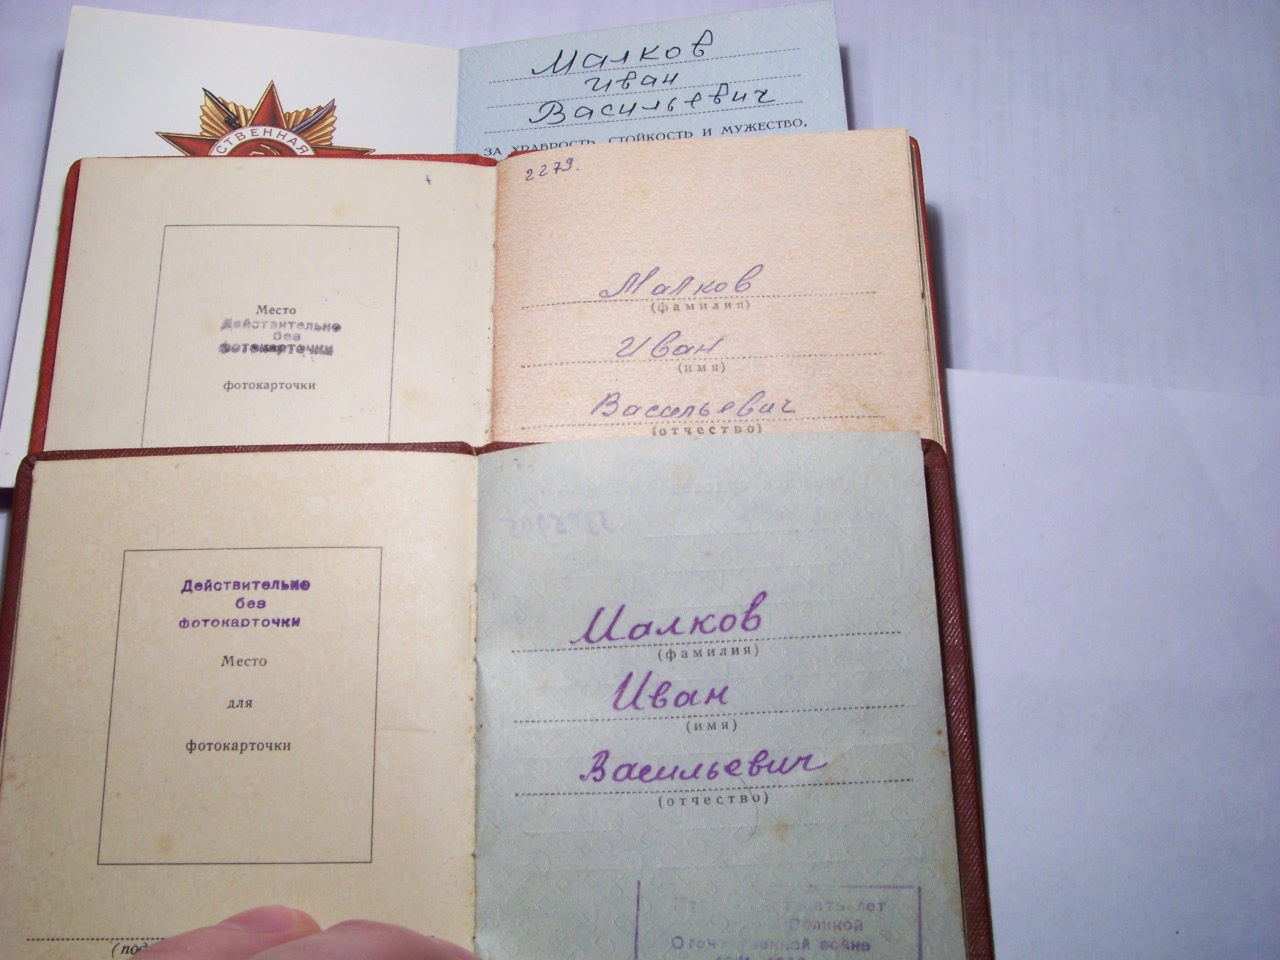 Малков
Иван
Васильевич
ЗА ХРАБРОСТЬ, СТОЙКОСТЬ И МУЖЕСТВО,
СТВЕННАЯ
2279.
Место
Действительно
без
фотокарточки
фотокарточки
Малков
(фамилия)
Иван
(имя)
Васильевич
(отчество)
Действительно
без
фотокарточки
Место
для
фотокарточки
Малков
(фамилия)
Иван
(имя)
Васильевич
(отчество)
лет
Великой
война
(под